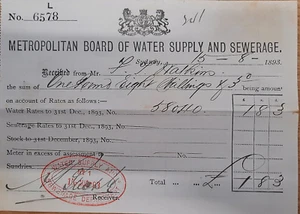 L
No. 6578
METROPOLITAN BOARD OF WATER SUPPLY AND SEWERAGE.
Sydney, 15 - 8 - 1893.
Received from Mr. Watkins
the sum of One Pound Eight Shillings & 3d being amount
on account of Rates as follows:—
Water Rates to 31st Dec., 1893, No. 58040 1 8 3
Sewerage Rates to 31st Dec., 1893, No.
Stock to 31st December, 1893, No.
Meter in excess of assessment
Sundries
Total ... ... £ 1 8 3
Receiver.